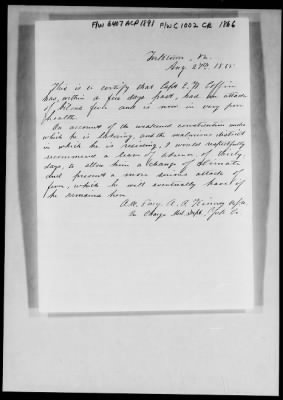 F/W 6407 ACP 1891 F/W C 1002 CR 1866
Va.
Aug 27th, 186
This is to certify that Capt E. W. Coffin
has, within a few days past, had an attack
of bilious fever and is now in very poor
health.
On account of the weakened constitution under
which he is laboring, and the malarious district
in which he is residing, I would respectfully
recommend a leave of absence of thirty
days, to allow him a change of climate
and prevent a more serious attack of
fever, which he will eventually have if
he remains here.
A. A.
In Charge Med. Dept.